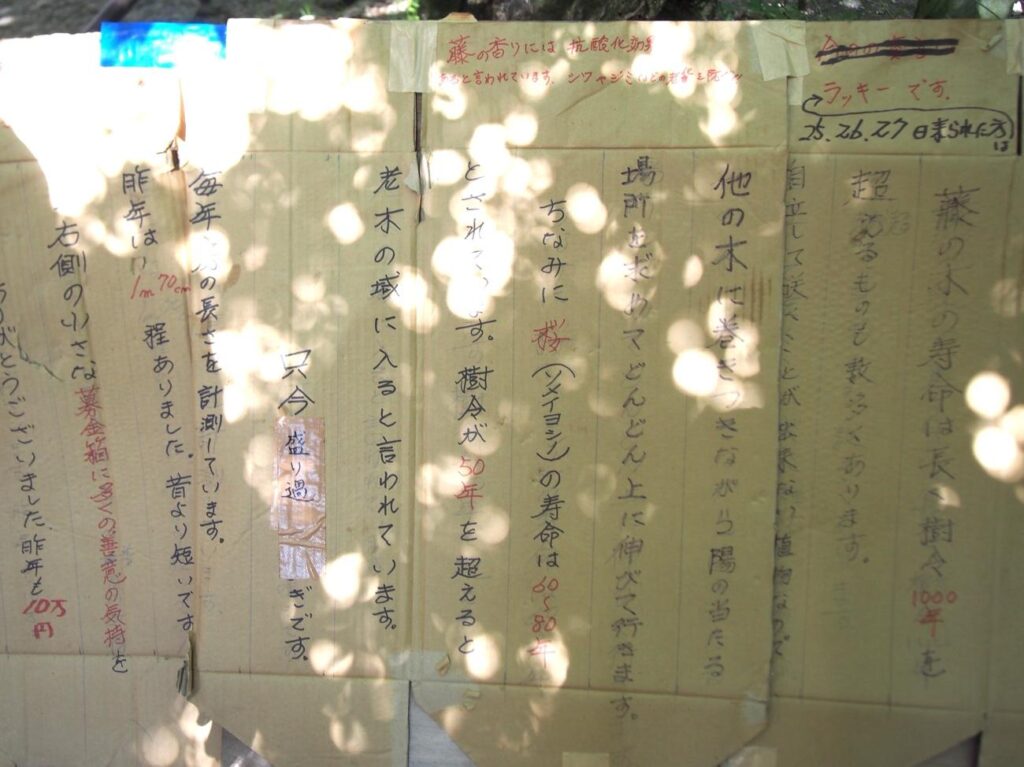 ラッキーです。
25.26.27日来られた方は
藤の木の寿命は長く樹令1000年を
超えるものも数多くあります。
自立して咲くことが出来ない植物なので
他の木に巻きつきながら陽の当たる
場所を求めてどんどん上に伸びて行きます。
ちなみに桜(ソメイヨシノ)の寿命は60~80年
とされてます。樹令が50年を超えると
老木の域に入ると言われています。
只今盛り過ぎです。
毎年の長さを計測しています。
昨年は1m70cm程ありました。昔より短いです
右側の小さな募金箱に多くの善意の気持を
ありがとうございました。昨年も10万円
藤の香りには抗酸化効果
あると言われています。シワやシミ